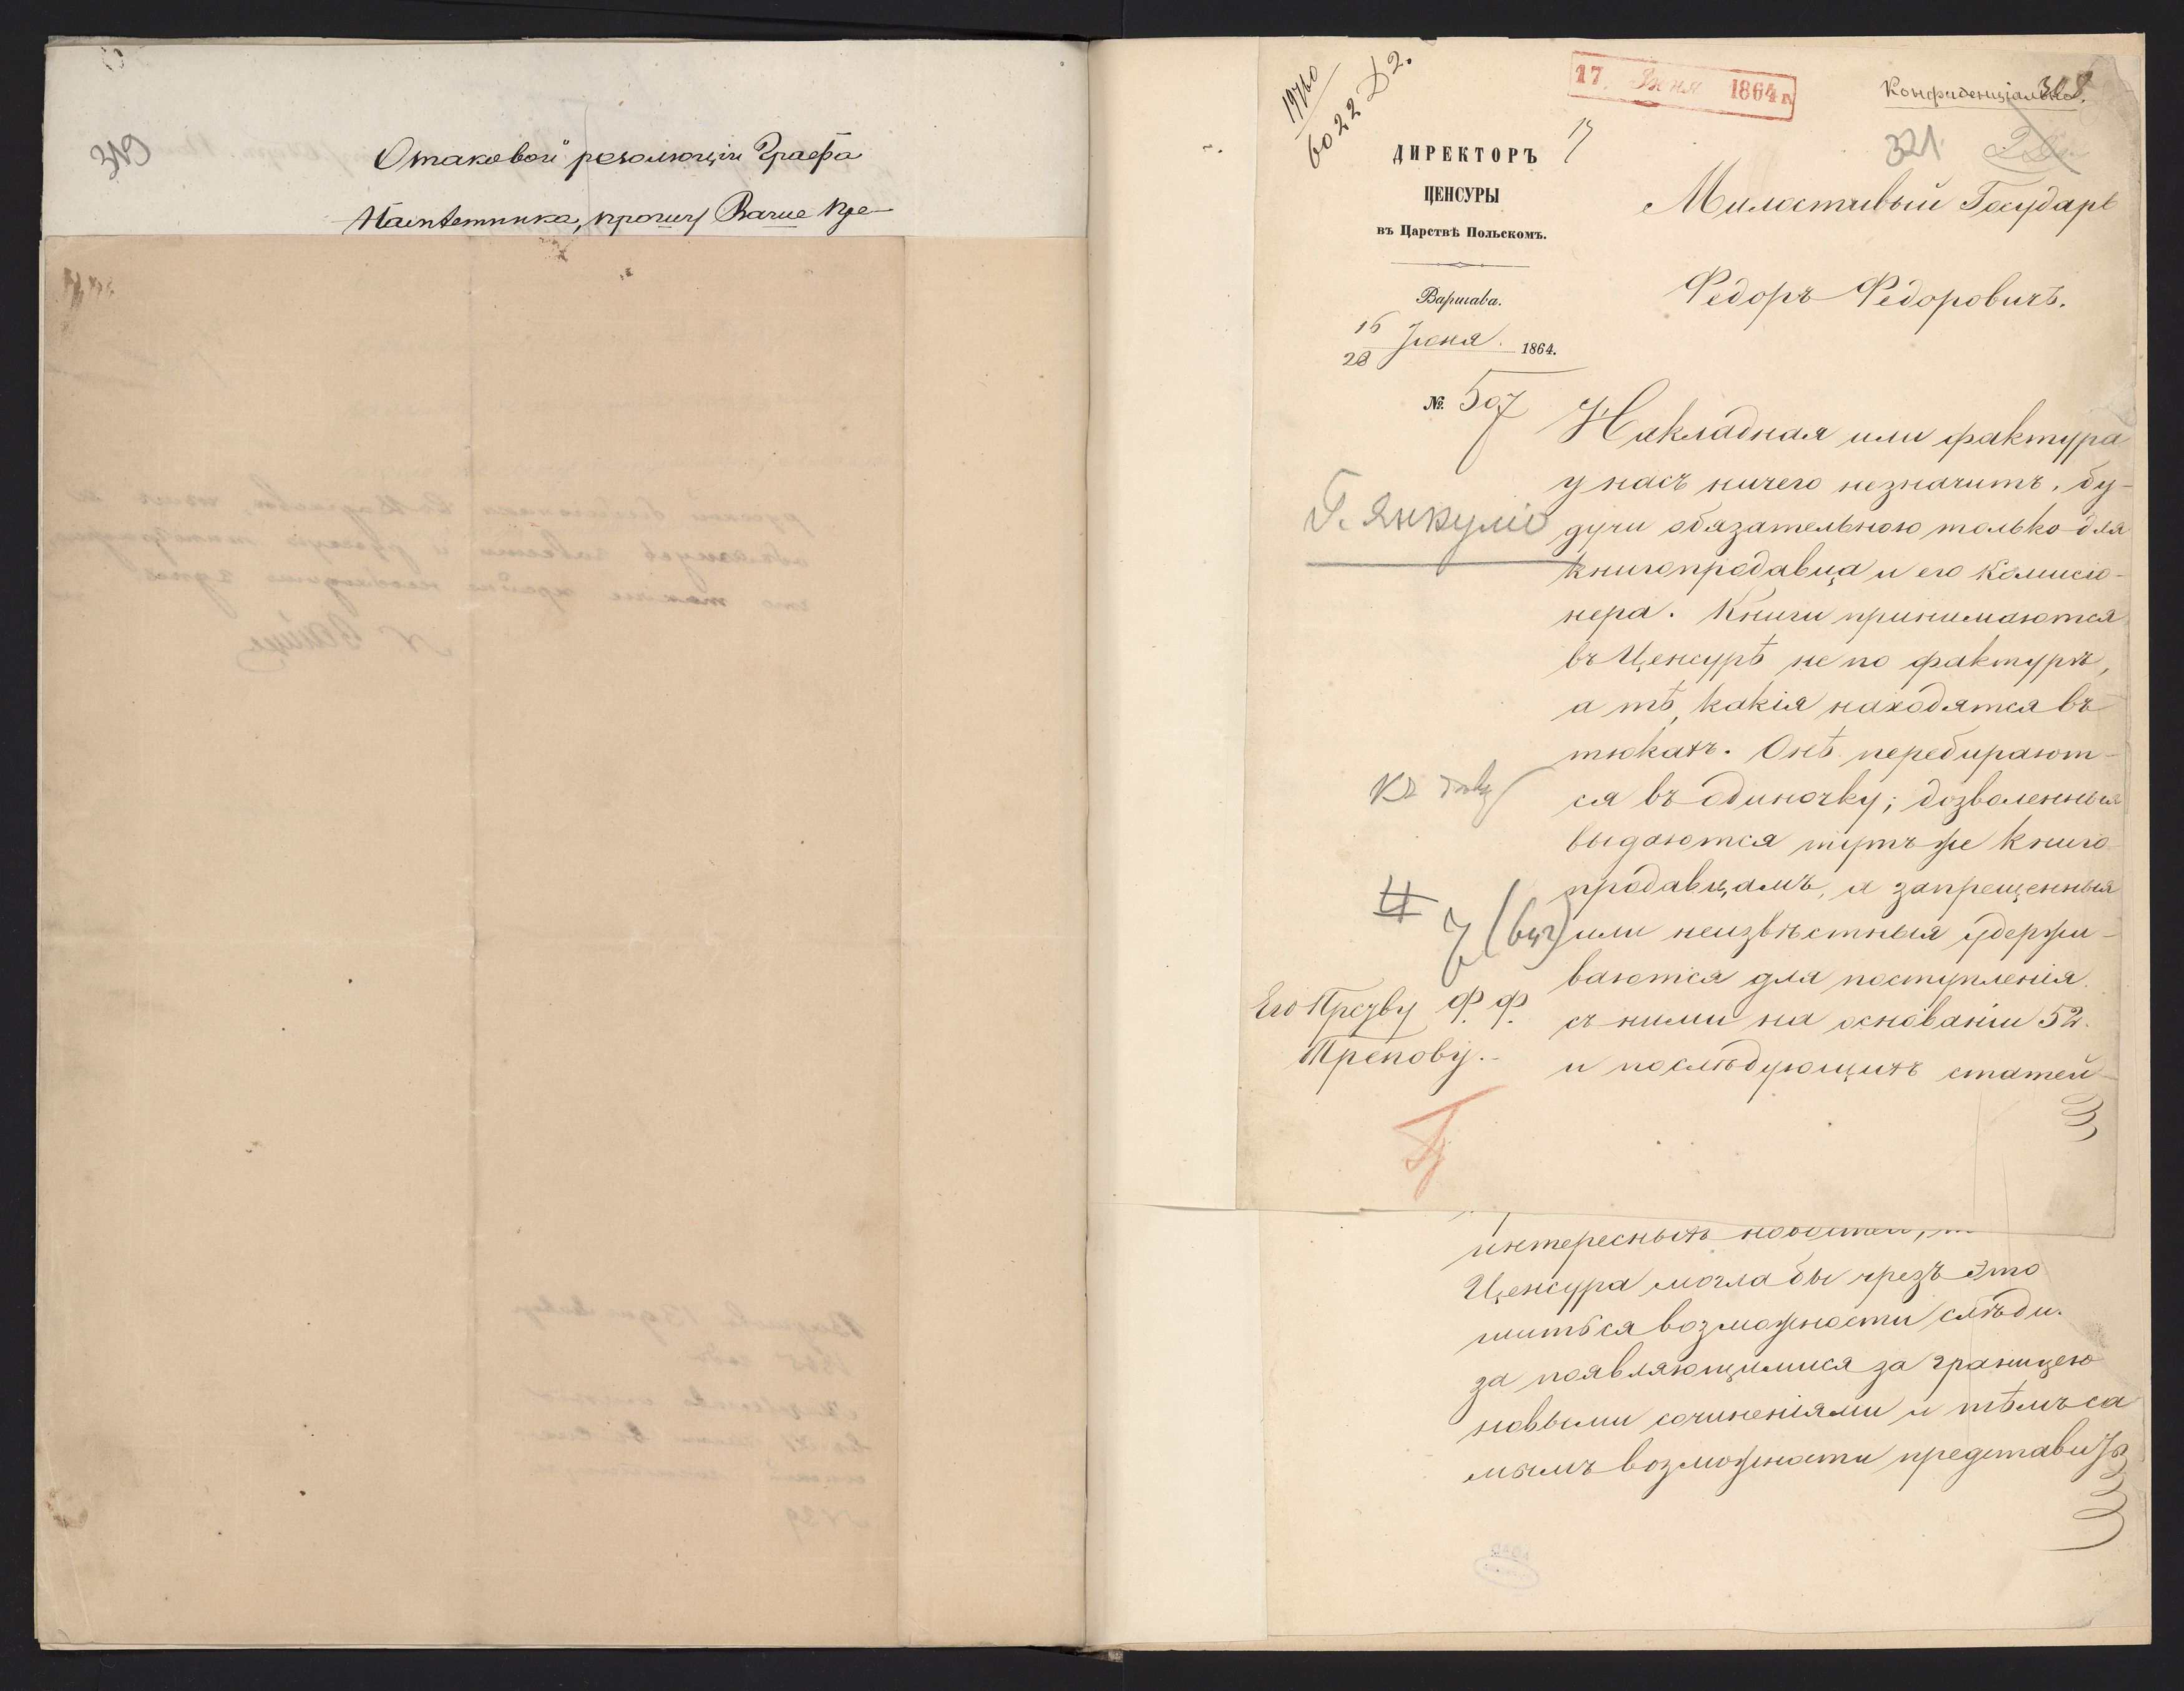 319
О таковой резолюціи Графа
Намѣстника, прошу Ваше Пре-
19760
6022 Д2.
17 Іюня 1864 г.
Конфиденціально.
308
321
17
ДИРЕКТОРЪ
ЦЕНСУРЫ
въ Царствѣ Польскомъ.
Варшава.
16
28 Іюня 1864.
№ 507
Милостивый Государь
Федоръ Федоровичъ.
Накладная или фактура
у насъ ничего незначитъ, бу-
дучи обязательною только для
книгопродавца и его комисіо-
нера. Книги принимаются
въ Ценсурѣ не по фактурѣ,
а тѣ, какія находятся въ
тюкахъ. Онѣ перебирают-
ся въ одиночку; дозволенныя
выдаются тутъ же книго-
продавцамъ, а запрещенныя
или неизвѣстныя удержи-
ваются для поступленія
съ ними на основаніи 52.
и послѣдующихъ статей
Г. Янкуліо
Къ
Его Прсдву Ф. Ф.
Трепову.
интересныхъ новостей,
Ценсура могла бы чрезъ это
шиться возможности слѣди-
за появляющимися за границею
новыми сочиненіями и тѣмъ са
мымъ возможности представить